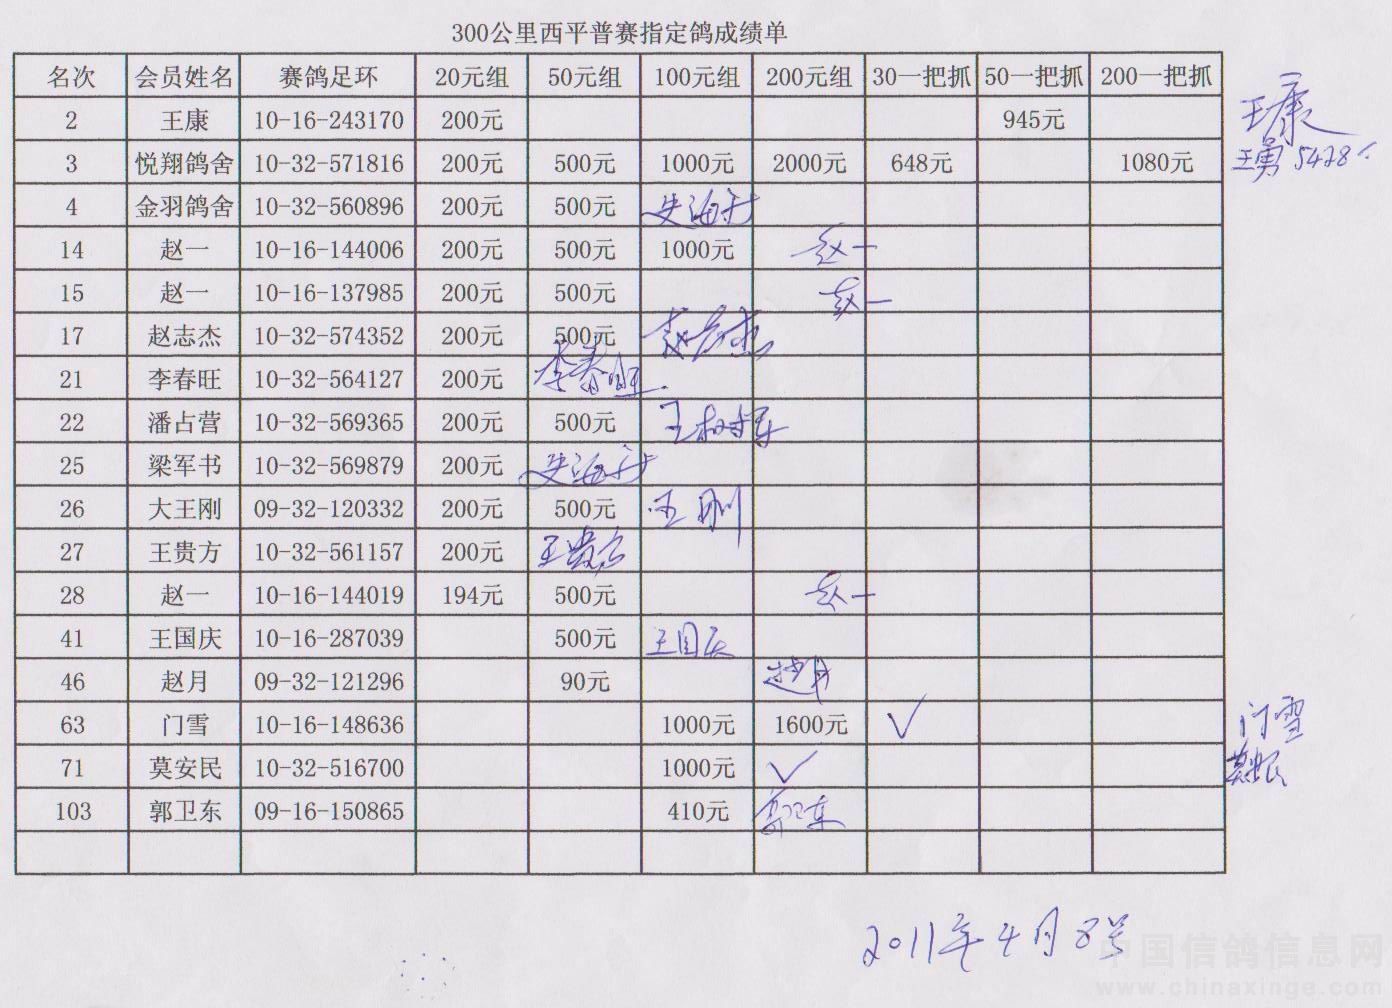 300公里西平普赛指定鸽成绩单
名次 会员姓名 赛鸽足环 20元组 50元组 100元组 200元组 30一把抓 50一把抓 200一把抓
2 王康 10-16-243170 200元 945元 王康
3 悦翔鸽舍 10-32-571816 200元 500元 1000元 2000元 648元 1080元 王勇 5428
4 金羽鸽舍 10-32-560896 200元 500元
14 赵一 10-16-144006 200元 500元 1000元 赵一
15 赵一 10-16-137985 200元 500元 赵一
17 赵志杰 10-32-574352 200元 500元 赵志杰
21 李春旺 10-32-564127 200元 李春旺
22 潘占营 10-32-569365 200元 500元 王树军
25 梁军书 10-32-569879 200元
26 大王刚 09-32-120332 200元 500元 王刚
27 王贵方 10-32-561157 200元 王贵方
28 赵一 10-16-144019 194元 500元 赵一
41 王国庆 10-16-287039 500元 王国庆
46 赵月 09-32-121296 90元 赵月
63 门雪 10-16-148636 1000元 1600元 ✓ 门雪
71 莫安民 10-32-516700 1000元 ✓ 莫安民
103 郭卫东 09-16-150865 410元 郭卫东
2011年4月8号
中国信鸽信息网
www.chinaxinge.com